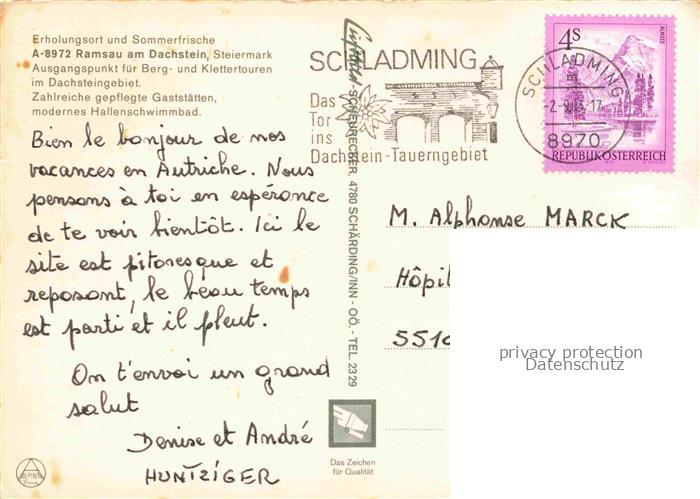 Erholungsort und Sommerfrische
A-8972 Ramsau am Dachstein, Steiermark
Ausgangspunkt für Berg- und Klettertouren
im Dachsteingebiet.
Zahlreiche gepflegte Gaststätten,
modernes Hallenschwimmbad.
Bien le bonjour de nos
vacances en Autriche. Nous
pensons à toi en espérance
de te voir bientôt. Ici le
site est pitoresque et
reposant, le beau temps
est parti et il pleut.
On t'envoi un grand
salut
Denise et André
HUNTZIGER
SCHLADMING
Das
Tor
ins
Dachstein-Tauerngebiet
4780 SCHÄRDING/INN - OÖ. - TEL. 23 29
SCHLADMING
8970
4S
ALMSEE
REPUBLIK ÖSTERREICH
M. Alphonse MARCK
Hôpit
5510
privacy protection
Datenschutz
Das Zeichen
für Qualität